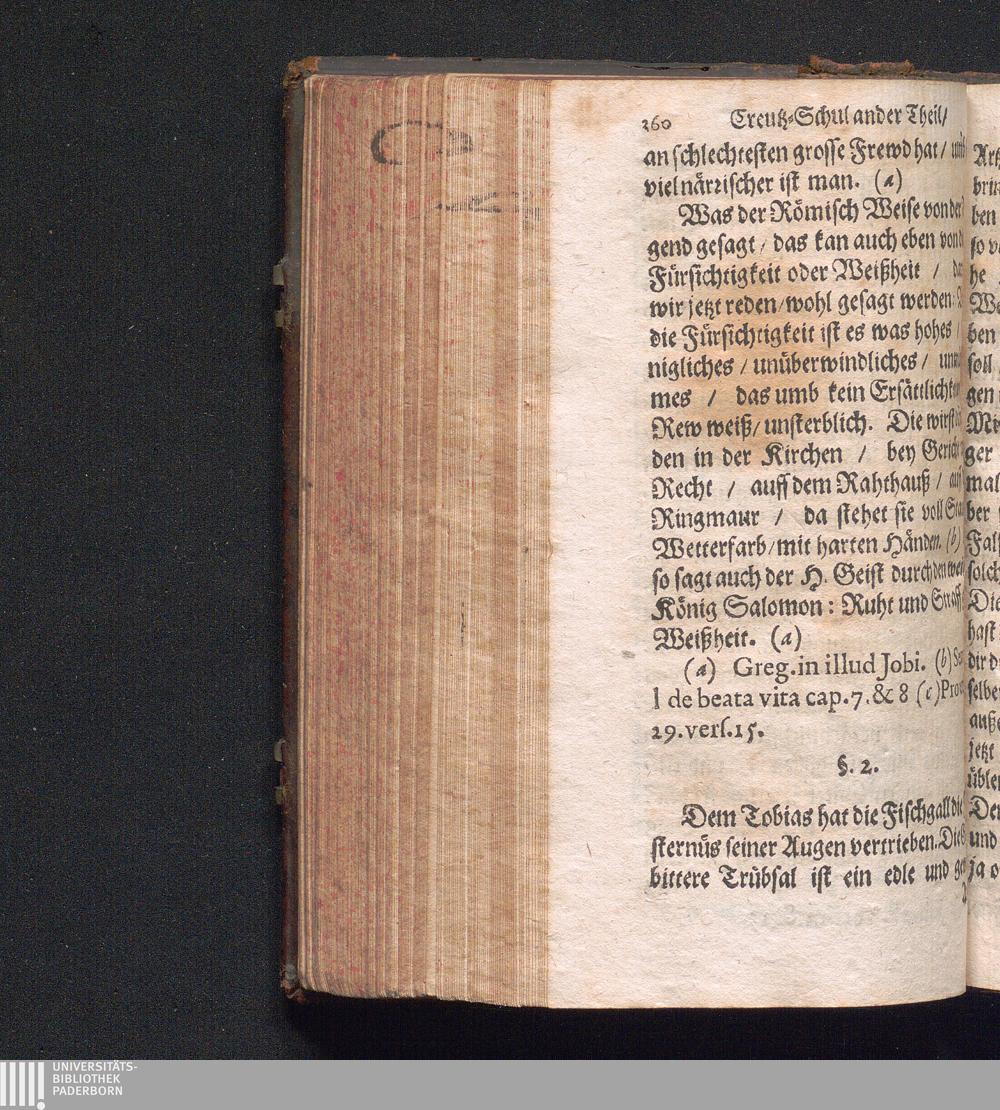 360 Creutz-Schul ander Theil/
an schlechtesten grosse Frewd hat /
viel närrischer ist man. (a)
Was der Römisch Weise von der
gend gesagt / das kan auch eben von
Fürsichtigkeit oder Weißheit /
wir jetzt reden / wohl gesagt werden:
die Fürsichtigkeit ist es was hohes
nigliches / unüberwindliches /
mes / das umb kein Ersättlich
Rew weiß / unsterblich. Die wirst
den in der Kirchen / bey
Recht / auff dem Rahthauß /
Ringmaur / da stehet sie voll
Wetterfarb / mit harten Händen. (b)
so sagt auch der H. Geist durch den
König Salomon: Ruht und
Weißheit. (a)
(a) Greg. in illud Jobi. (b)
l de beata vita cap. 7. & 8 (c) Prov
29. vers. 15.
§. 2.
Dem Tobias hat die Fischgall die
sternüs seiner Augen vertrieben.
bittere Trübsal ist ein edle und
brin
ben
he
ben
soll
gen
ger
mal
ber
solch
Die
hast
dir
selbe
jetzt
und
ja
UNIVERSITÄTS-
BIBLIOTHEK
PADERBORN